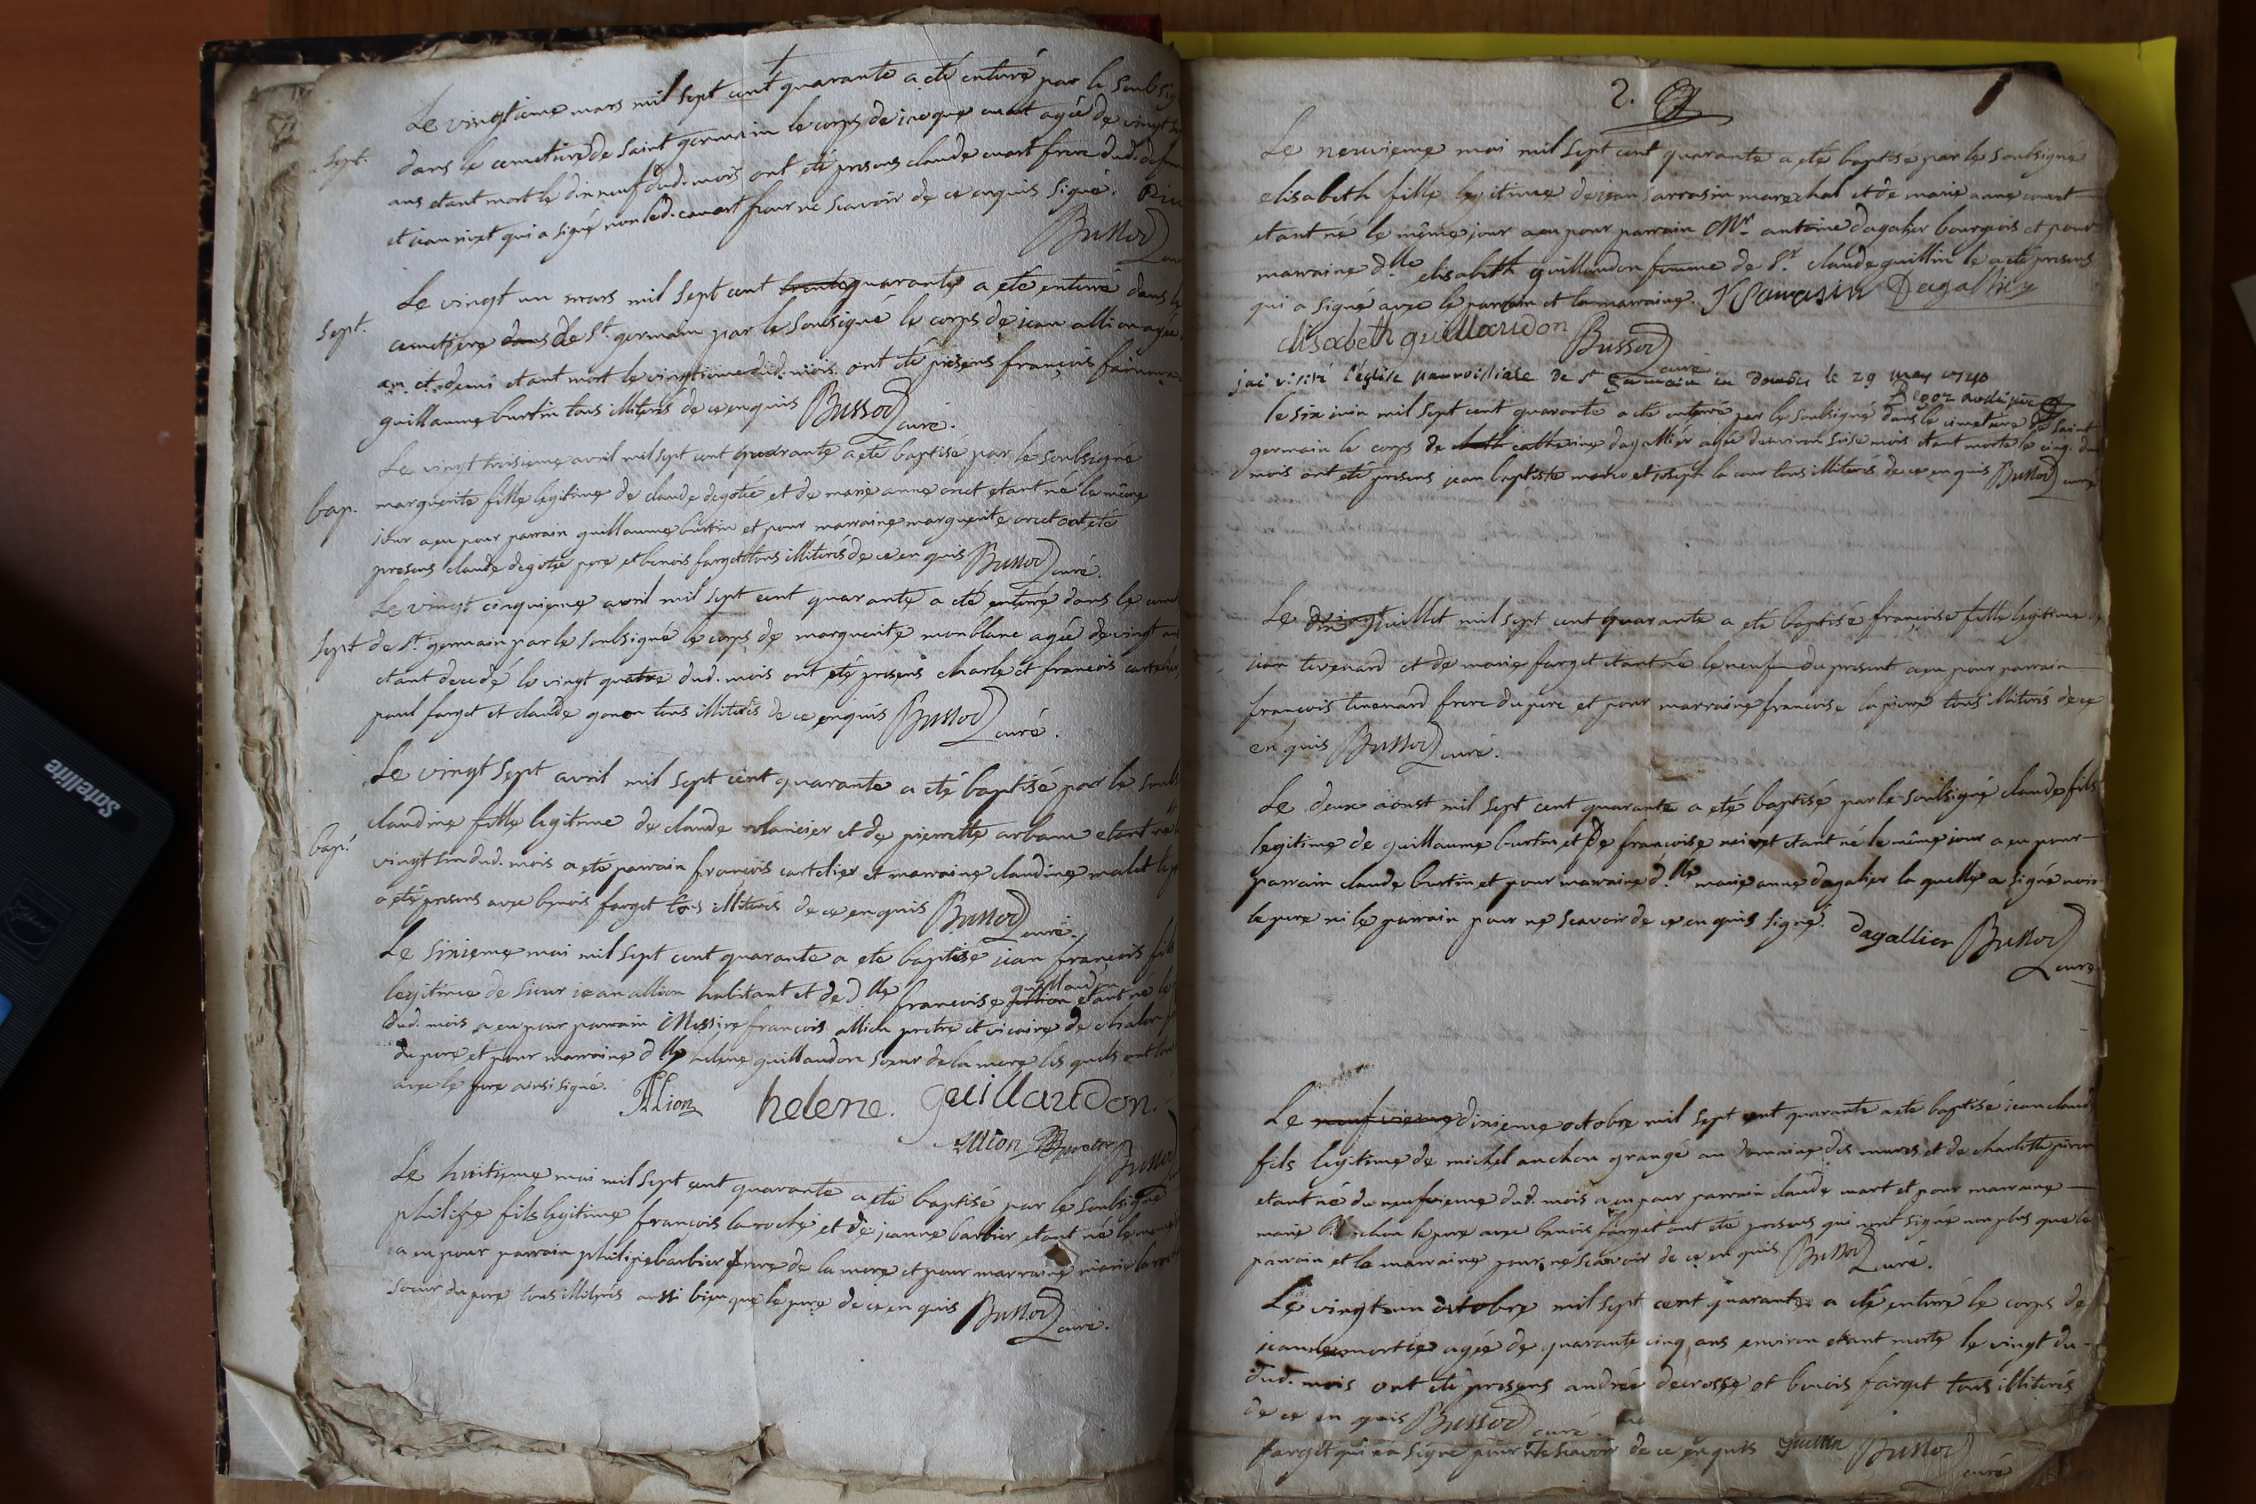 Le vingtieme mars mil sept cent quarante a eté enterré par le soubsig
sept. dans le cemetiere de saint germain le corps de agée de vingt
ans etant mort le dix neuf dud. mois ont eté presens claude cuart frere dud. defun
et jean qui a signé non led. cuart pour ne scavoir de ce enquis signé.
Bussod
Le vingt un mars mil sept cent trente quarante a eté enterré dans le
sept. cemetiere dans de St. germain par le soubsigné le corps de jean allion agée
an et demi etant mort le vingtieme dud. mois ont eté presens françois
guillaume burtin tous illiterés de ce enquis Bussod curé.
Le vingt troisieme avril mil sept cent quarante a eté baptisé par le soubsigné
bap. marguerite fille legitime de claude degotée et de marie anne oret etant né le même
jour a eu pour parrain guillaume burtin et pour marraine marguerite oret ont eté
presens claude degotée pere et benois farget tous illiterés de ce enquis Bussod curé.
Le vingt cinquieme avril mil sept cent quarante a eté enterré dans le ceme
sept de St. germain par le soubsigné le corps de marguerite monblanc agée de vingt ans
etant decedé le vingt quatre dud. mois ont eté presens charle et francois cartelier
paul farget et claude gonon tous illiterés de ce enquis Bussod curé.
Le vingt sept avril mil sept cent quarante a eté baptisé par le soubs
bap. claudine fille legitime de claude et de pierrette arbane etant né
vingt six dud. mois a eté parrain françois cartelier et marraine claudine malet le p
a eté presens avec benois farget tous illiterés de ce enquis Bussod curé.
Le sixieme mai mil sept cent quarante a eté baptisé jean françois fils
guillaudon
legitime de sieur jean allion habitant et de dlle francoise allion etant né le
dud. mois a eu pour parrain Messire francois allion pretre et vicaire de chalon
du pere et pour marraine dlle helene guillaudon soeur de la mere les quels ont
avec le pere ainsi signé. Allion helene. guillaudon.
allion Bussod
Le huitieme mai mil sept cent quarante a eté baptisé par le soubsigné
philipe fils legitime françois laroche et de jeanne barbier etant né le meme
a eu pour parrain philipe barbier frere de la mere et pour marraine marie laroc
soeur du pere tous illiterés aussi bien que le pere de ce enquis Bussod curé.
2.
Le neuvieme mai mil sept cent quarante a eté baptisé par le soubsigné
elisabeth fille legitime de jean sarrasin marechal et de marie anne cuart
etant né le même jour a eu pour parrain Mr. antoine dagalier bourgeois et pour
marraine dlle elisabeth guillaudon femme de Sr. claude guillin le a eté presens
qui a signé avec le parrain et la marraine. J Sarrasin Dagallier
elisabeth guillaudon Bussod curé.
jai visité l'église parroissiale de St Germain en Dombes le 29 may 1740
le six juin mil sept cent quarante a eté enterré par le soubsigné dans le cimetiere de saint
germain le corps de catherine dagallier agée denviron seise mois etant morte le cinq du
mois ont eté presens jean baptiste et joseph la cour tous illiterés de ce enquis Bussod curé
Le juillet mil sept cent quarante a eté baptisé françoise fille legitime de
jean tevenard et de marie farget etant né le neuf du present a eu pour parrain
françois tevenard frere du pere et pour marraine francoise lapierre tous illiterés de ce
enquis Bussod curé.
Le deux aoust mil sept cent quarante a eté baptisé par le soubsigné claude fils
legitime de guillaume burtin et de francoise etant né le même jour a eu pour
parrain claude burtin et pour marraine dlle marie anne dagalier la quelle a signé non
le pere ni le parrain pour ne scavoir de ce enquis signé. dagallier Bussod
curé
Le neufvieme dixieme octobre mil sept cent quarante a eté baptisé jean claude
fils legitime de michel anchon grangé au domaine des mures et de charlotte
etant né du neufvieme dud. mois a eu pour parrain claude cuart et pour marraine
marie anchon le pere avec benois farget ont eté presens qui nont signé non plus que le
parrain et la marraine pour ne scavoir de ce enquis Bussod curé.
Le vingt un octobre mil sept cent quarante a eté enterré le corps de
agée de quarante cinq ans environ etant morte le vingt du
dud. mois ont eté presens andrée decrosse et benois farget tous illiterés
de ce enquis Bussod curé.
farget qui na signé pour ne scavoir de ce enquis Guillin Bussod
curé
Satellite